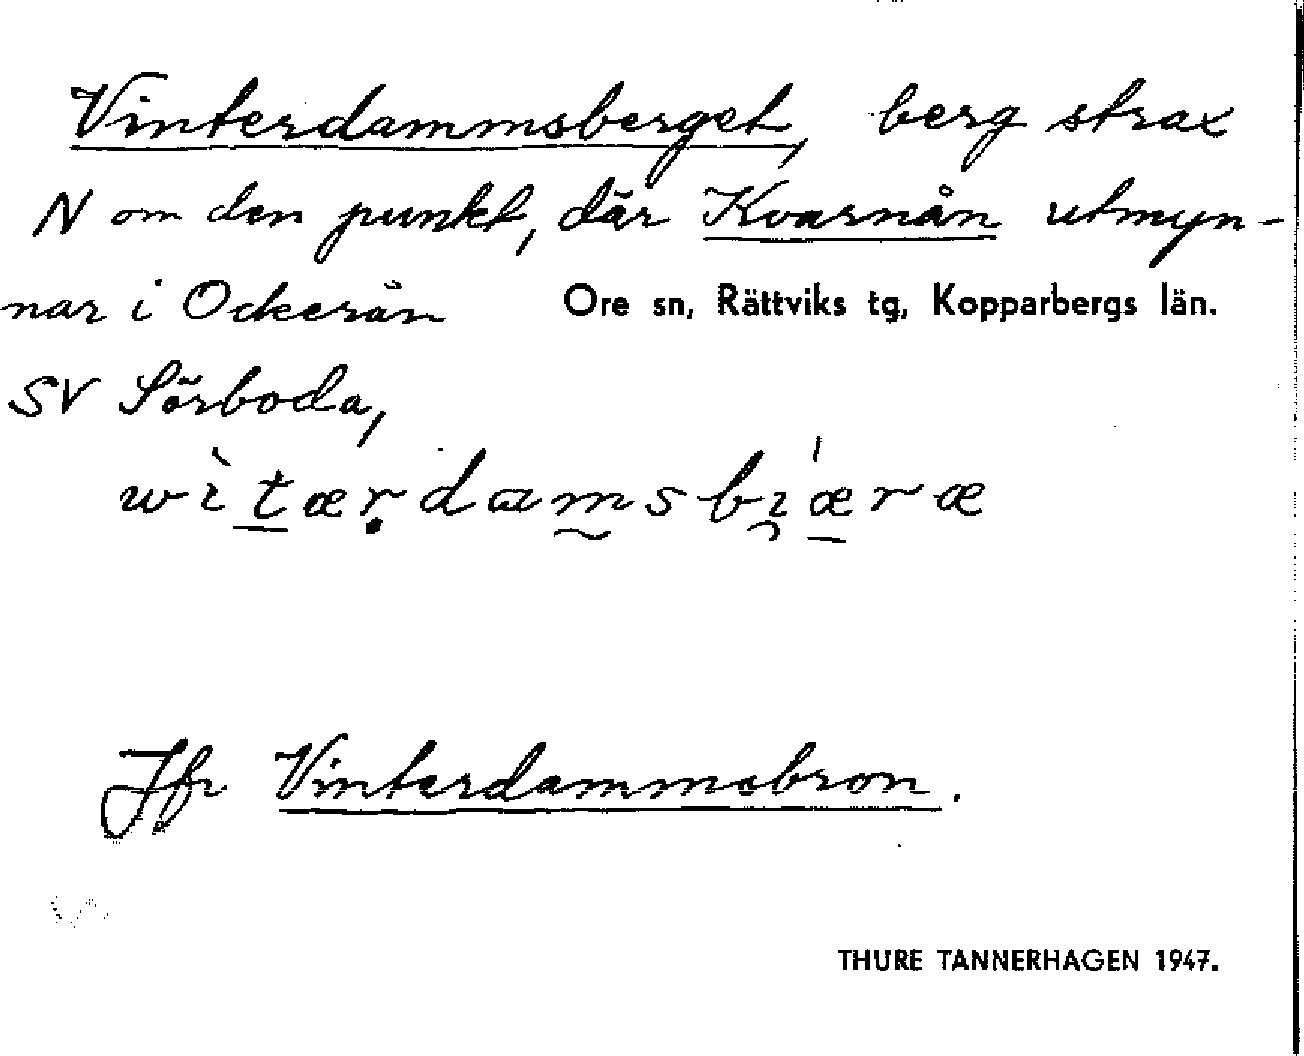 Vinterdammsberget, berg strax
N om den punkt, där Kvarnån utmyn-
nar i Ockerån Ore sn, Rättviks tg, Kopparbergs län.
SV Sörboda,
wìt̲ærḍam̰sbi̯ǽ̲ræ
Jfr Vinterdammsbron.
THURE TANNERHAGEN 1947.